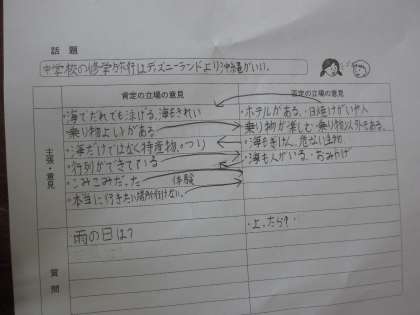 話題
中学校の修学旅行はディズニーランドより沖縄がいい。
肯定の立場の意見
否定の立場の意見
主張・意見
・海でだれでも泳げる。海もきれい
・ホテルがある。・日焼けがいや人
乗り物よいがある
乗り物が楽しむ・乗り物以外もある。
・海だけではなく特産物。つり
・海もきけん、危ない生物
・行列ができている
・海も人がいる・おみやげ
・こみこみだった 体験
・本当に行きたい場所行けない。
質問
雨の日は?
・よったら?